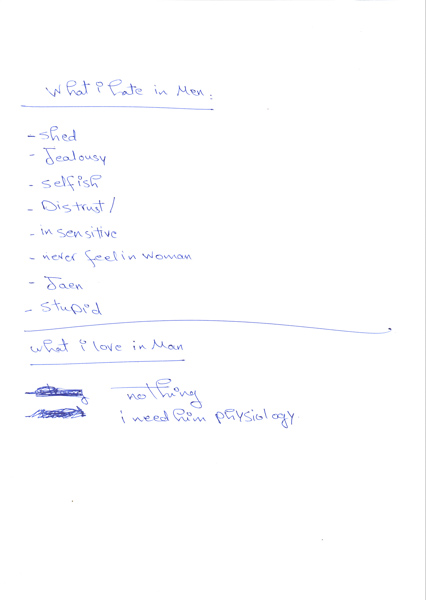 What i hate in Men:
- shed
- Jealousy
- selfish
- Distrust/
- insensitive
- never feel in woman
- Jaen
- stupid
what i love in Man
nothing
i need him physiology